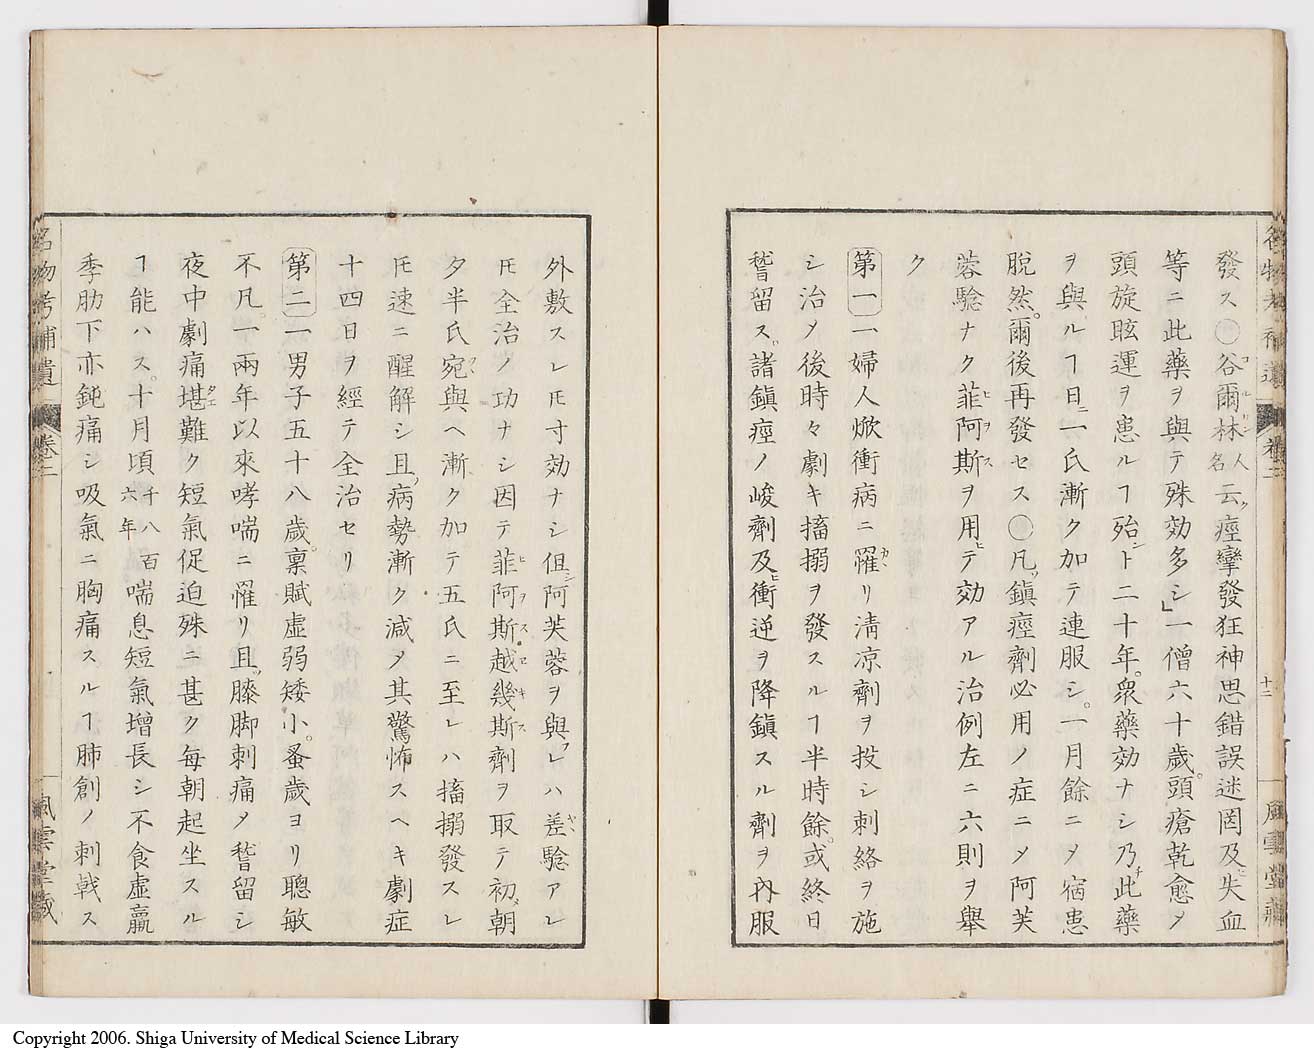 名物考補遺 卷二 十二 風雲堂藏
發ス○谷爾林人名云痙攣發狂神思錯誤迷罔及失血
等ニ此藥ヲ與テ殊効多シ」一僧六十歲。頭瘡乾愈〆
頭旋眩運ヲ患ルヿ殆ト二十年。衆藥効ナシ乃此藥
ヲ與ルヿ日ニ一氏漸ク加テ連服シ。一月餘ニ〆宿患
脫然。爾後再發セス○凡鎮痙劑必用ノ症ニ〆阿芙
蓉驗ナク菲阿斯ヲ用テ効アル治例左ニ六則ヲ舉
ク
第一 一婦人焮衝病ニ罹リ淸凉劑ヲ投シ刺絡ヲ施
シ治〆後時々劇キ搐搦ヲ發スルヿ半時餘。或終日
稽留ス。諸鎮痙ノ峻劑及衝逆ヲ降鎮スル劑ヲ內服
外敷スレ𪜈寸効ナシ但阿芙蓉ヲ與レハ差驗アレ
𪜈全治ノ功ナシ因テ菲阿斯越幾斯劑ヲ取テ初朝
夕半氏宛與ヘ漸ク加テ五氏ニ至レハ搐搦發スレ
𪜈速ニ醒解シ且病勢漸ク減〆其驚怖スヘキ劇症
十四日ヲ經テ全治セリ
第二 一男子五十八歲。稟賦虛弱矮小。蚤歲ヨリ聰敏
不凡。一兩年以來哮喘ニ罹リ且膝脚刺痛〆稽留シ
夜中劇痛堪難ク短氣促迫殊ニ甚ク每朝起坐スル
ヿ能ハス。十月頃千八百六年喘息短氣增長シ不食虛羸
季肋下亦鈍痛シ吸氣ニ胸痛スルヿ肺創ノ刺戟ス
名物考補遺 卷二 風雲堂藏
Copyright 2006. Shiga University of Medical Science Library